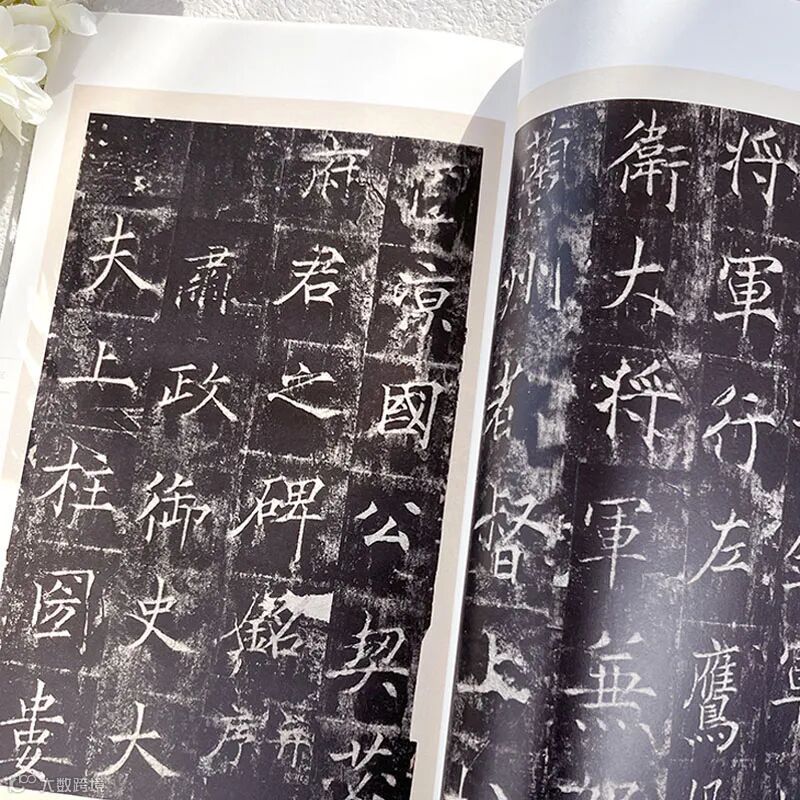 將軍行左鷹
衛大將軍兼
蘭州都督上
涼國公契苾
府君之碑銘并序
肅政御史大
夫上柱圀婁
大数跨境